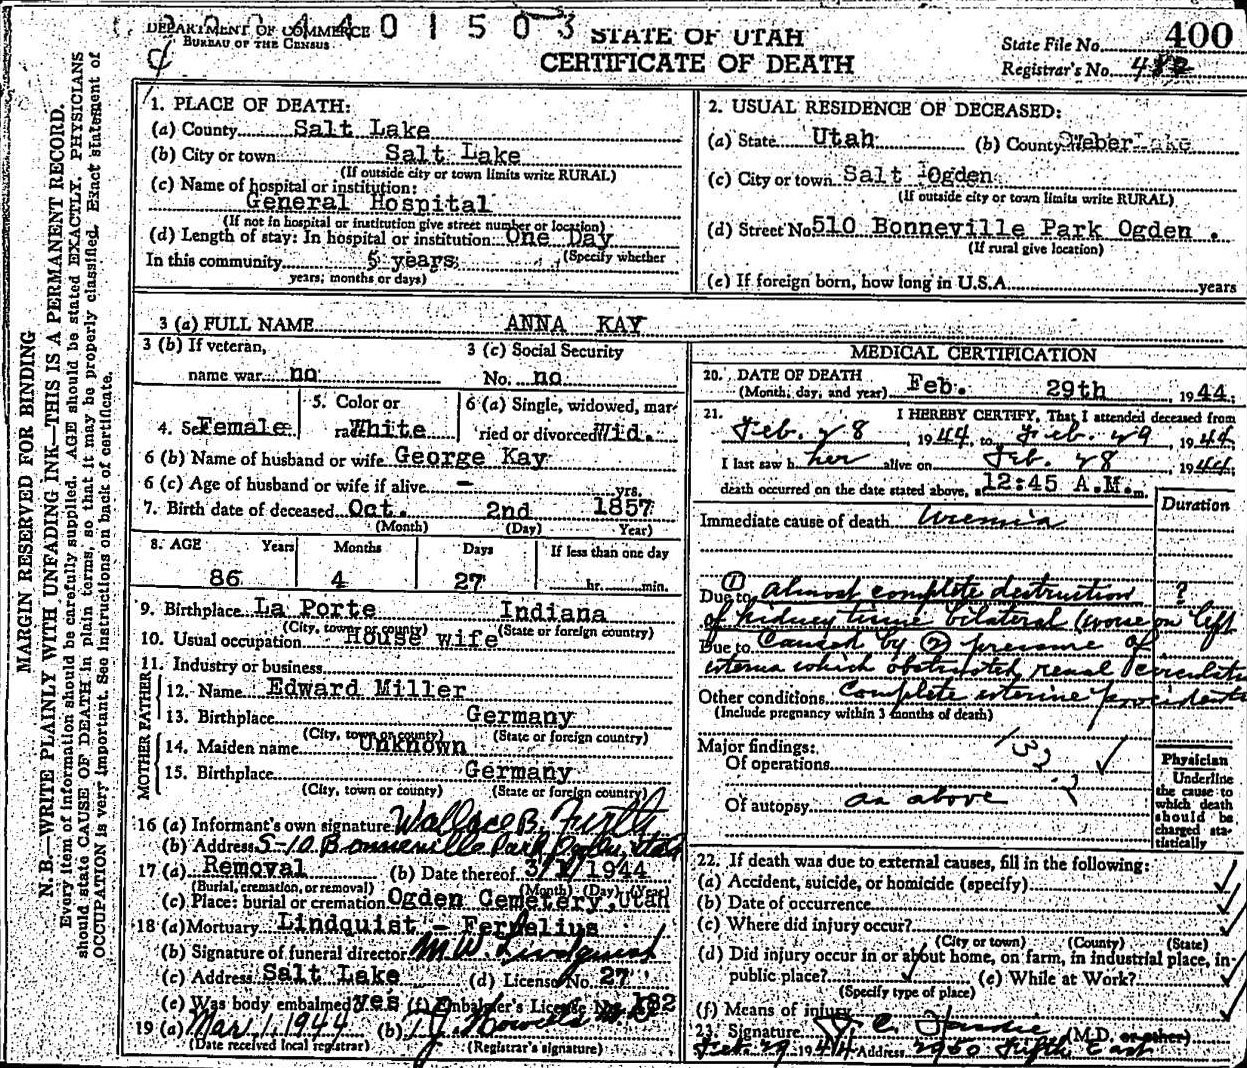 DEPARTMENT OF COMMERCE
BUREAU OF THE CENSUS
4 4 0 1 5 0 3
STATE OF UTAH
CERTIFICATE OF DEATH
State File No. 400
Registrar's No.
MARGIN RESERVED FOR BINDING
N. B.—WRITE PLAINLY WITH UNFADING INK—THIS IS A PERMANENT RECORD.
Every item of information should be carefully supplied. AGE should be stated EXACTLY. PHYSICIANS
should state CAUSE OF DEATH in plain terms, so that it may be properly classified. Exact statement of
OCCUPATION is very important. See instructions on back of certificate.
1. PLACE OF DEATH:
(a) County Salt Lake
(b) City or town Salt Lake
(If outside city or town limits write RURAL)
(c) Name of hospital or institution:
General Hospital
(If not in hospital or institution give street number or location)
(d) Length of stay: In hospital or institution One Day
(Specify whether
In this community 5 years
years, months or days)
2. USUAL RESIDENCE OF DECEASED:
(a) State Utah (b) County Weber
(c) City or town Salt Ogden
(If outside city or town limits write RURAL)
(d) Street No. 510 Bonneville Park Ogden .
(If rural give location)
(e) If foreign born, how long in U.S.A. years
3 (a) FULL NAME ANNA KAY
3 (b) If veteran,
name war no
3 (c) Social Security
No. no
4. Sex Female
5. Color or
race White
6 (a) Single, widowed, mar-
ried or divorced Wid.
6 (b) Name of husband or wife George Kay
6 (c) Age of husband or wife if alive - yrs.
7. Birth date of deceased Oct. 2nd 1857
(Month) (Day) Year)
8. AGE Years Months Days If less than one day
86 4 27 hr. min.
9. Birthplace La Porte Indiana
(City, town or county) (State or foreign country)
10. Usual occupation House wife
11. Industry or business
FATHER
12. Name Edward Miller
13. Birthplace Germany
(City, town or county) (State or foreign country)
MOTHER
14. Maiden name Unknown
15. Birthplace Germany
(City, town or county) (State or foreign country)
16 (a) Informant's own signature Wallace B. Firth
(b) Address 510 Bonneville Park Ogden, Utah
17 (a) Removal (b) Date thereof 3/1/1944
(Burial, cremation, or removal) (Month) (Day) (Year)
(c) Place: burial or cremation Ogden Cemetery, Utah
18 (a) Mortuary Lindquist - Fernelius
(b) Signature of funeral director M.W. Lindquist
(c) Address Salt Lake (d) License No. 27
(e) Was body embalmed? yes (f) Embalmer's License No. 182
19 (a) Mar. 1, 1944 (b)
(Date received local registrar) (Registrar's signature)
MEDICAL CERTIFICATION
20. DATE OF DEATH
(Month, day, and year) Feb. 29th , 1944;
21. I HEREBY CERTIFY, That I attended deceased from
Feb. 28, 1944, to Feb. 29, 1944
I last saw her alive on Feb. 28, 1944;
death occurred on the date stated above, at 12:45 A.M. m.
Duration
Immediate cause of death Uremia
Due to (1) Almost complete destruction ?
of kidney tissue bilateral (worse on left
Due to Caused by (2) pressure of
uterus which obstructed renal circulation
Other conditions Complete uterine procidentia
(Include pregnancy within 3 months of death)
Major findings:
Of operations
Of autopsy as above
Physician
Underline
the cause to
which death
should be
charged sta-
tistically
22. If death was due to external causes, fill in the following:
(a) Accident, suicide, or homicide (specify)
(b) Date of occurrence
(c) Where did injury occur?
(City or town) (County) (State)
(d) Did injury occur in or about home, on farm, in industrial place, in
public place? (e) While at Work?
(Specify type of place)
(f) Means of injury
23. Signature (M.D. or other)
Feb. 29 1944 Address 2950 Fifth East